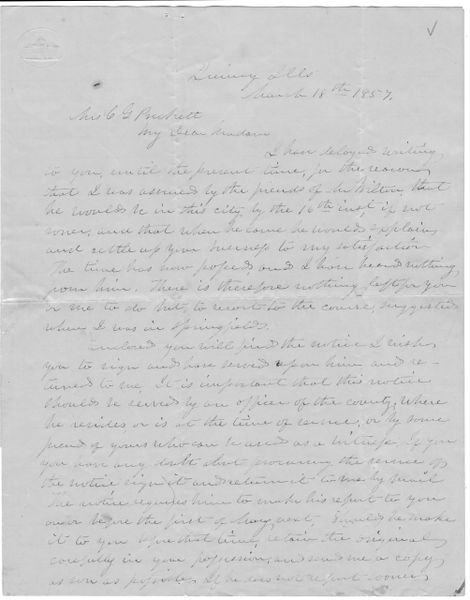 Quincy Ills
March 18th 1857.
Mrs C G Prickett
My Dear Madam
I have delayed writing
to you, until the present time, for the reason
that I was assured by the friends of Mr Wilton, that
he would be in this city by the 16th inst, if not
sooner, and that when he come he would explain
and settle up your business to my satisfaction
The time has now passed and I have heard nothing
from him. There is therefore nothing left for you
or me to do but, to resort to the course, suggested
when I was in Springfield.
Enclosed you will find the notice I wish
you to sign and have served upon him and re-
turned to me. It is important that this notice
should be served by an officer of the county, where
he resides or is at the time of service, or by some
friend of yours who can be used as a witness. If you
have any doubt about procuring the service of
the notice sign it and return it to me by mail
The notice requires him to make his report to you
on or before the first of May next. Should he make
it to you before that time, retain the original
carefully in your possession, and send me a copy
as soon as possible. If he does not report sooner,